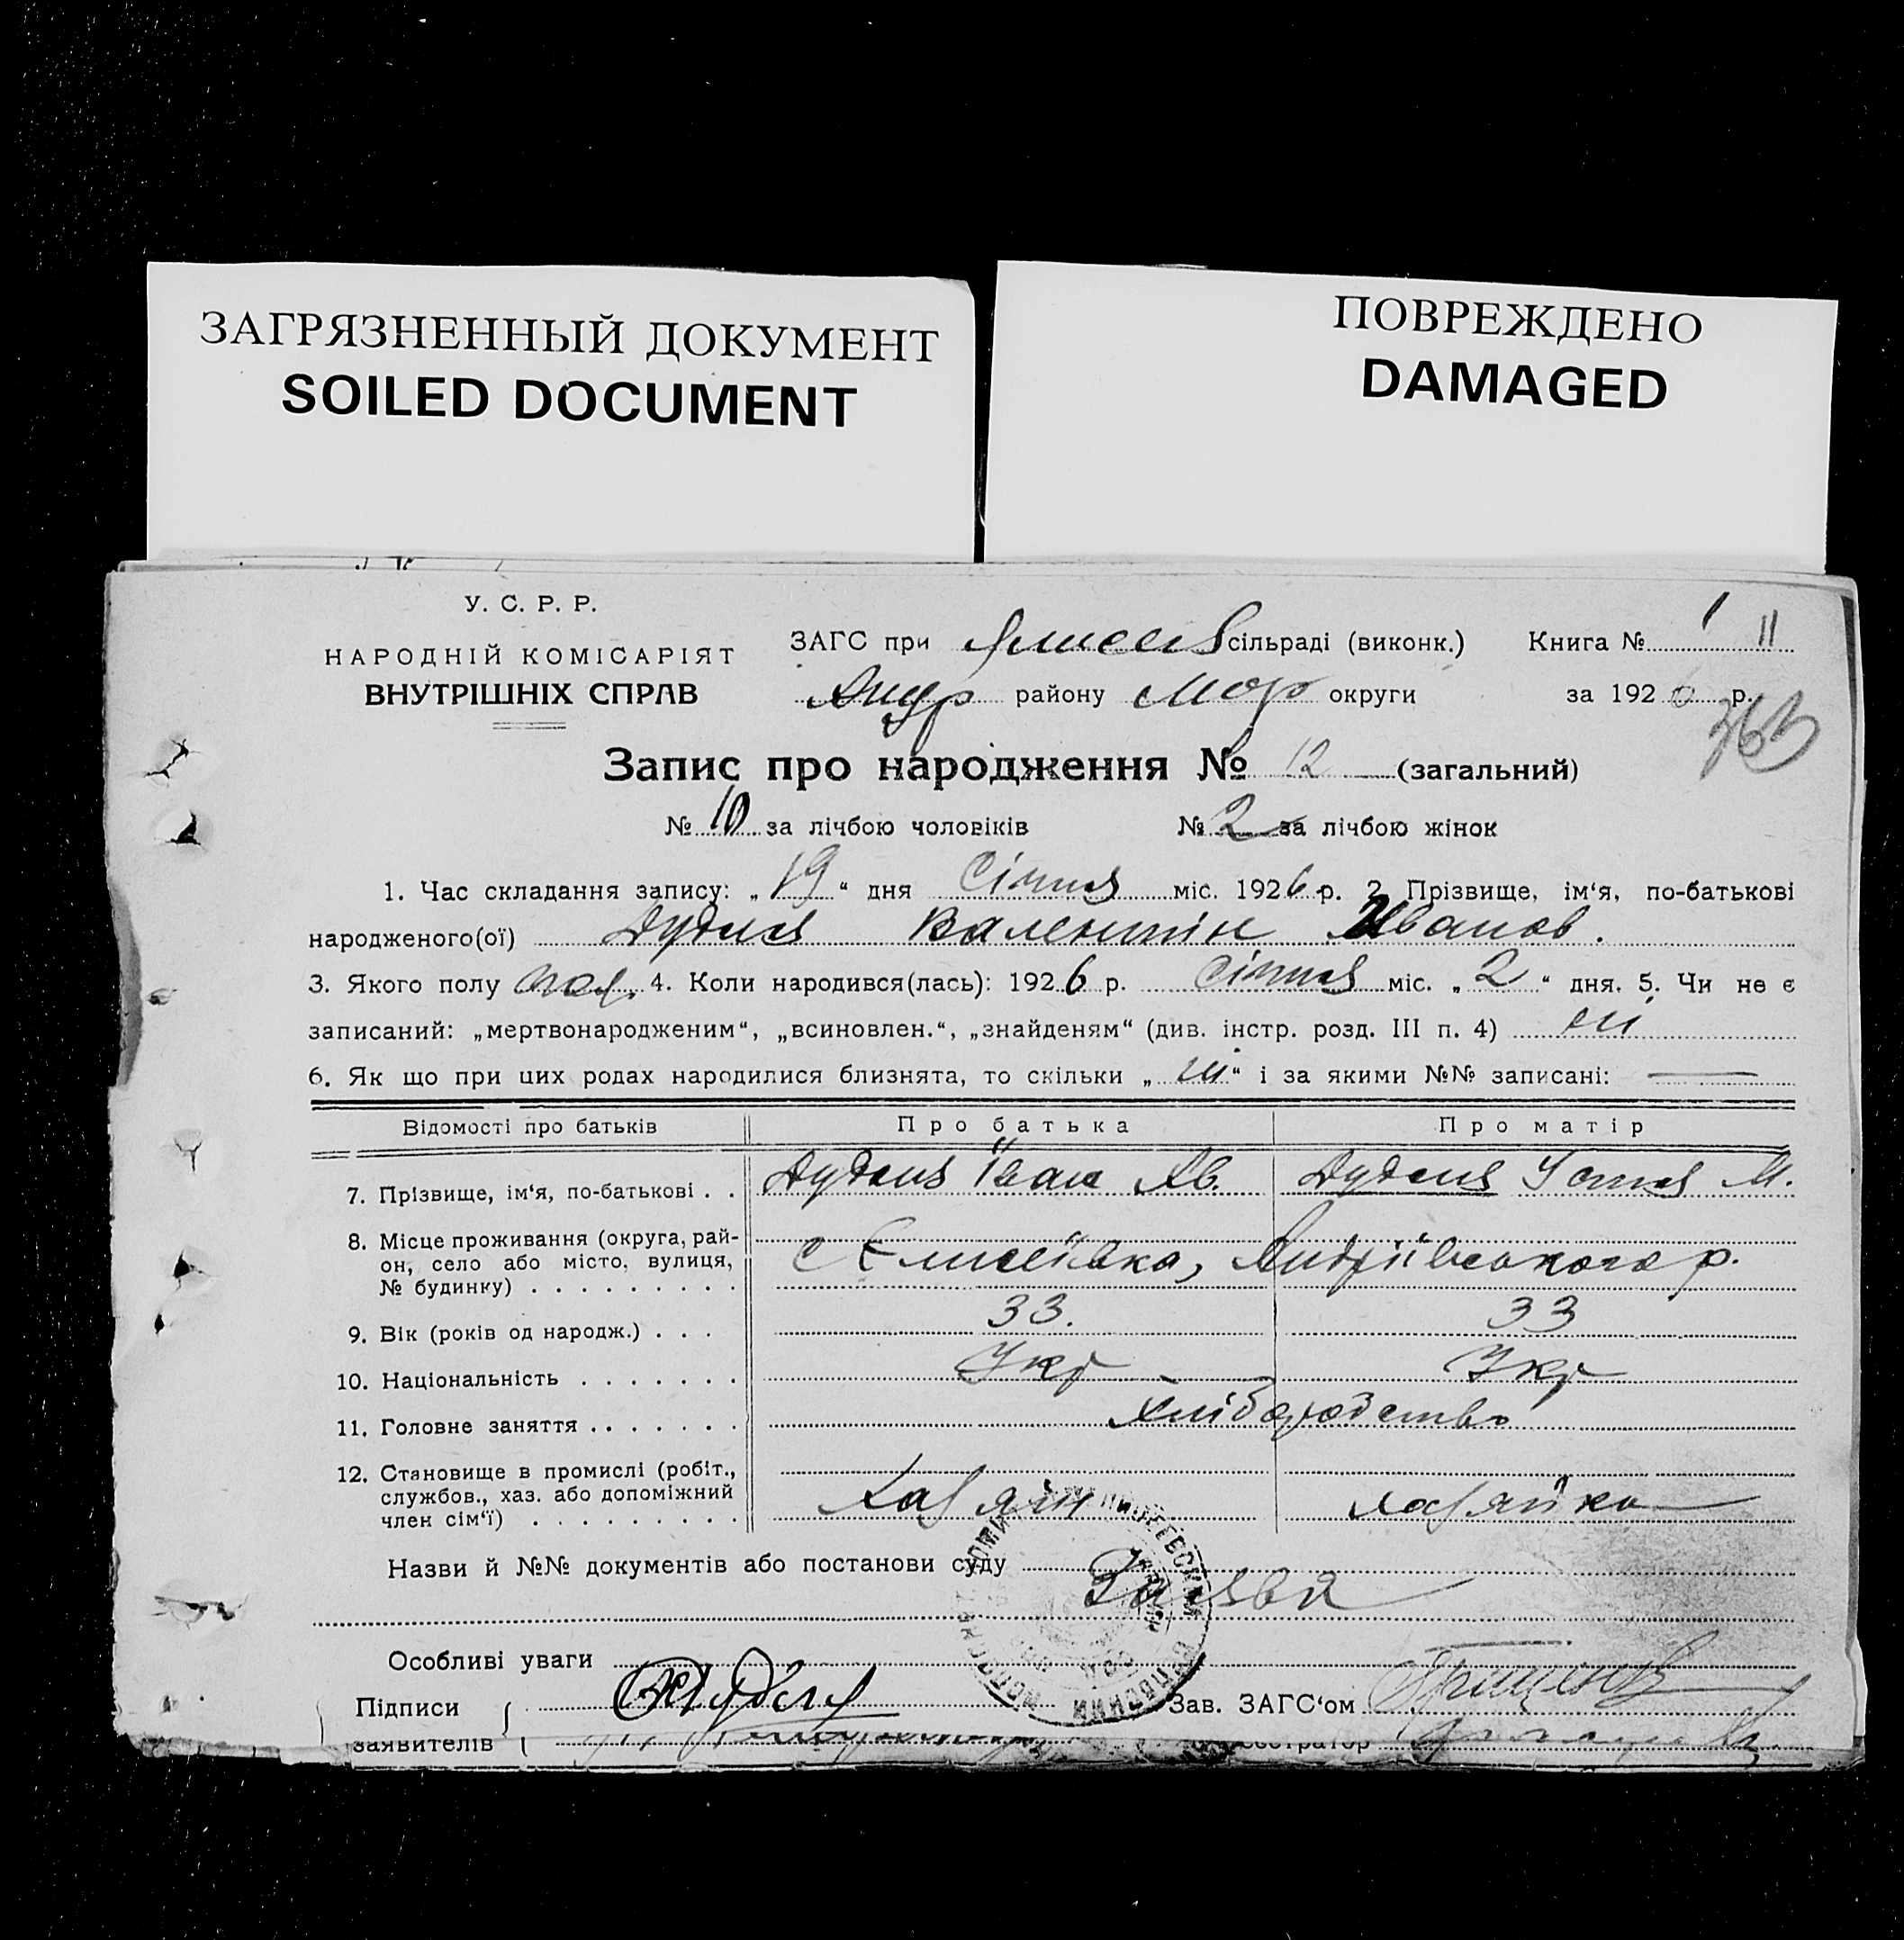 ЗАГРЯЗНЕННЫЙ ДОКУМЕНТ
SOILED DOCUMENT
ПОВРЕЖДЕНО
DAMAGED
У. С. Р. Р.
НАРОДНІЙ КОМІСАРІЯТ
ВНУТРІШНІХ СПРАВ
ЗАГС при сільраді (виконк.) Книга № 1 11
Андр району Мар округи за 1926 р.
363
Запис про народження № 12 (загальний)
№ 10 за лічбою чоловіків № 2 за лічбою жінок
1. Час складання запису: „19“ дня Січня міс. 1926 р. 2. Прізвище, ім‘я, по-батькові
народженого(ої) Дудня Валентін Иванов.
3. Якого полу чол. 4. Коли народився(лась): 1926 р. Січня міс. „2“ дня. 5. Чи не є
записаний: „мертвонародженим“, „всиновлен.“, „знайденям“ (див. інстр. розд. III п. 4) ні
6. Як що при цих родах народилися близнята, то скільки „ні“ і за якими №№ записані: —
Відомості про батьків Про батька Про матір
7. Прізвище, ім‘я, по-батькові . . Іван М.
8. Місце проживання (округа, рай-
он, село або місто, вулиця,
№ будинку) . . . . . . . . . с Єлисеївка, Андріївського р.
9. Вік (років од народж.) . . . 33. 33
10. Національність . . . . . . . Укр Укр
11. Головне заняття . . . . . . . Хліборобство
12. Становище в промислі (робіт.,
службов., хаз. або допоміжний
член сім‘ї) . . . . . . . . . Хазяїн хазяйка
Назви й №№ документів або постанови суду Заява
Особливі уваги
Підписи Зав. ЗАГС‘ом
заявителів